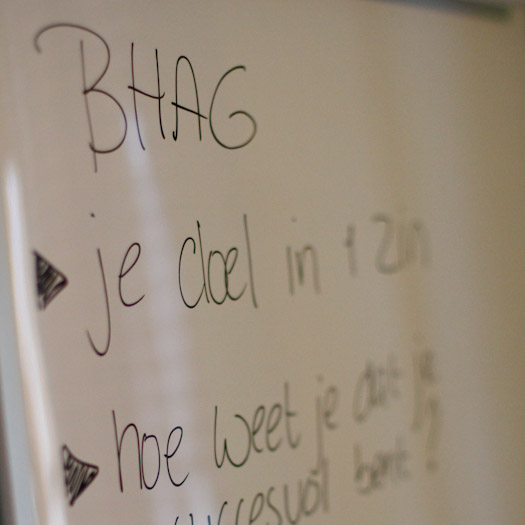 BHAG
je doel in 1 zin
hoe weet je dat je
succesvol bent?